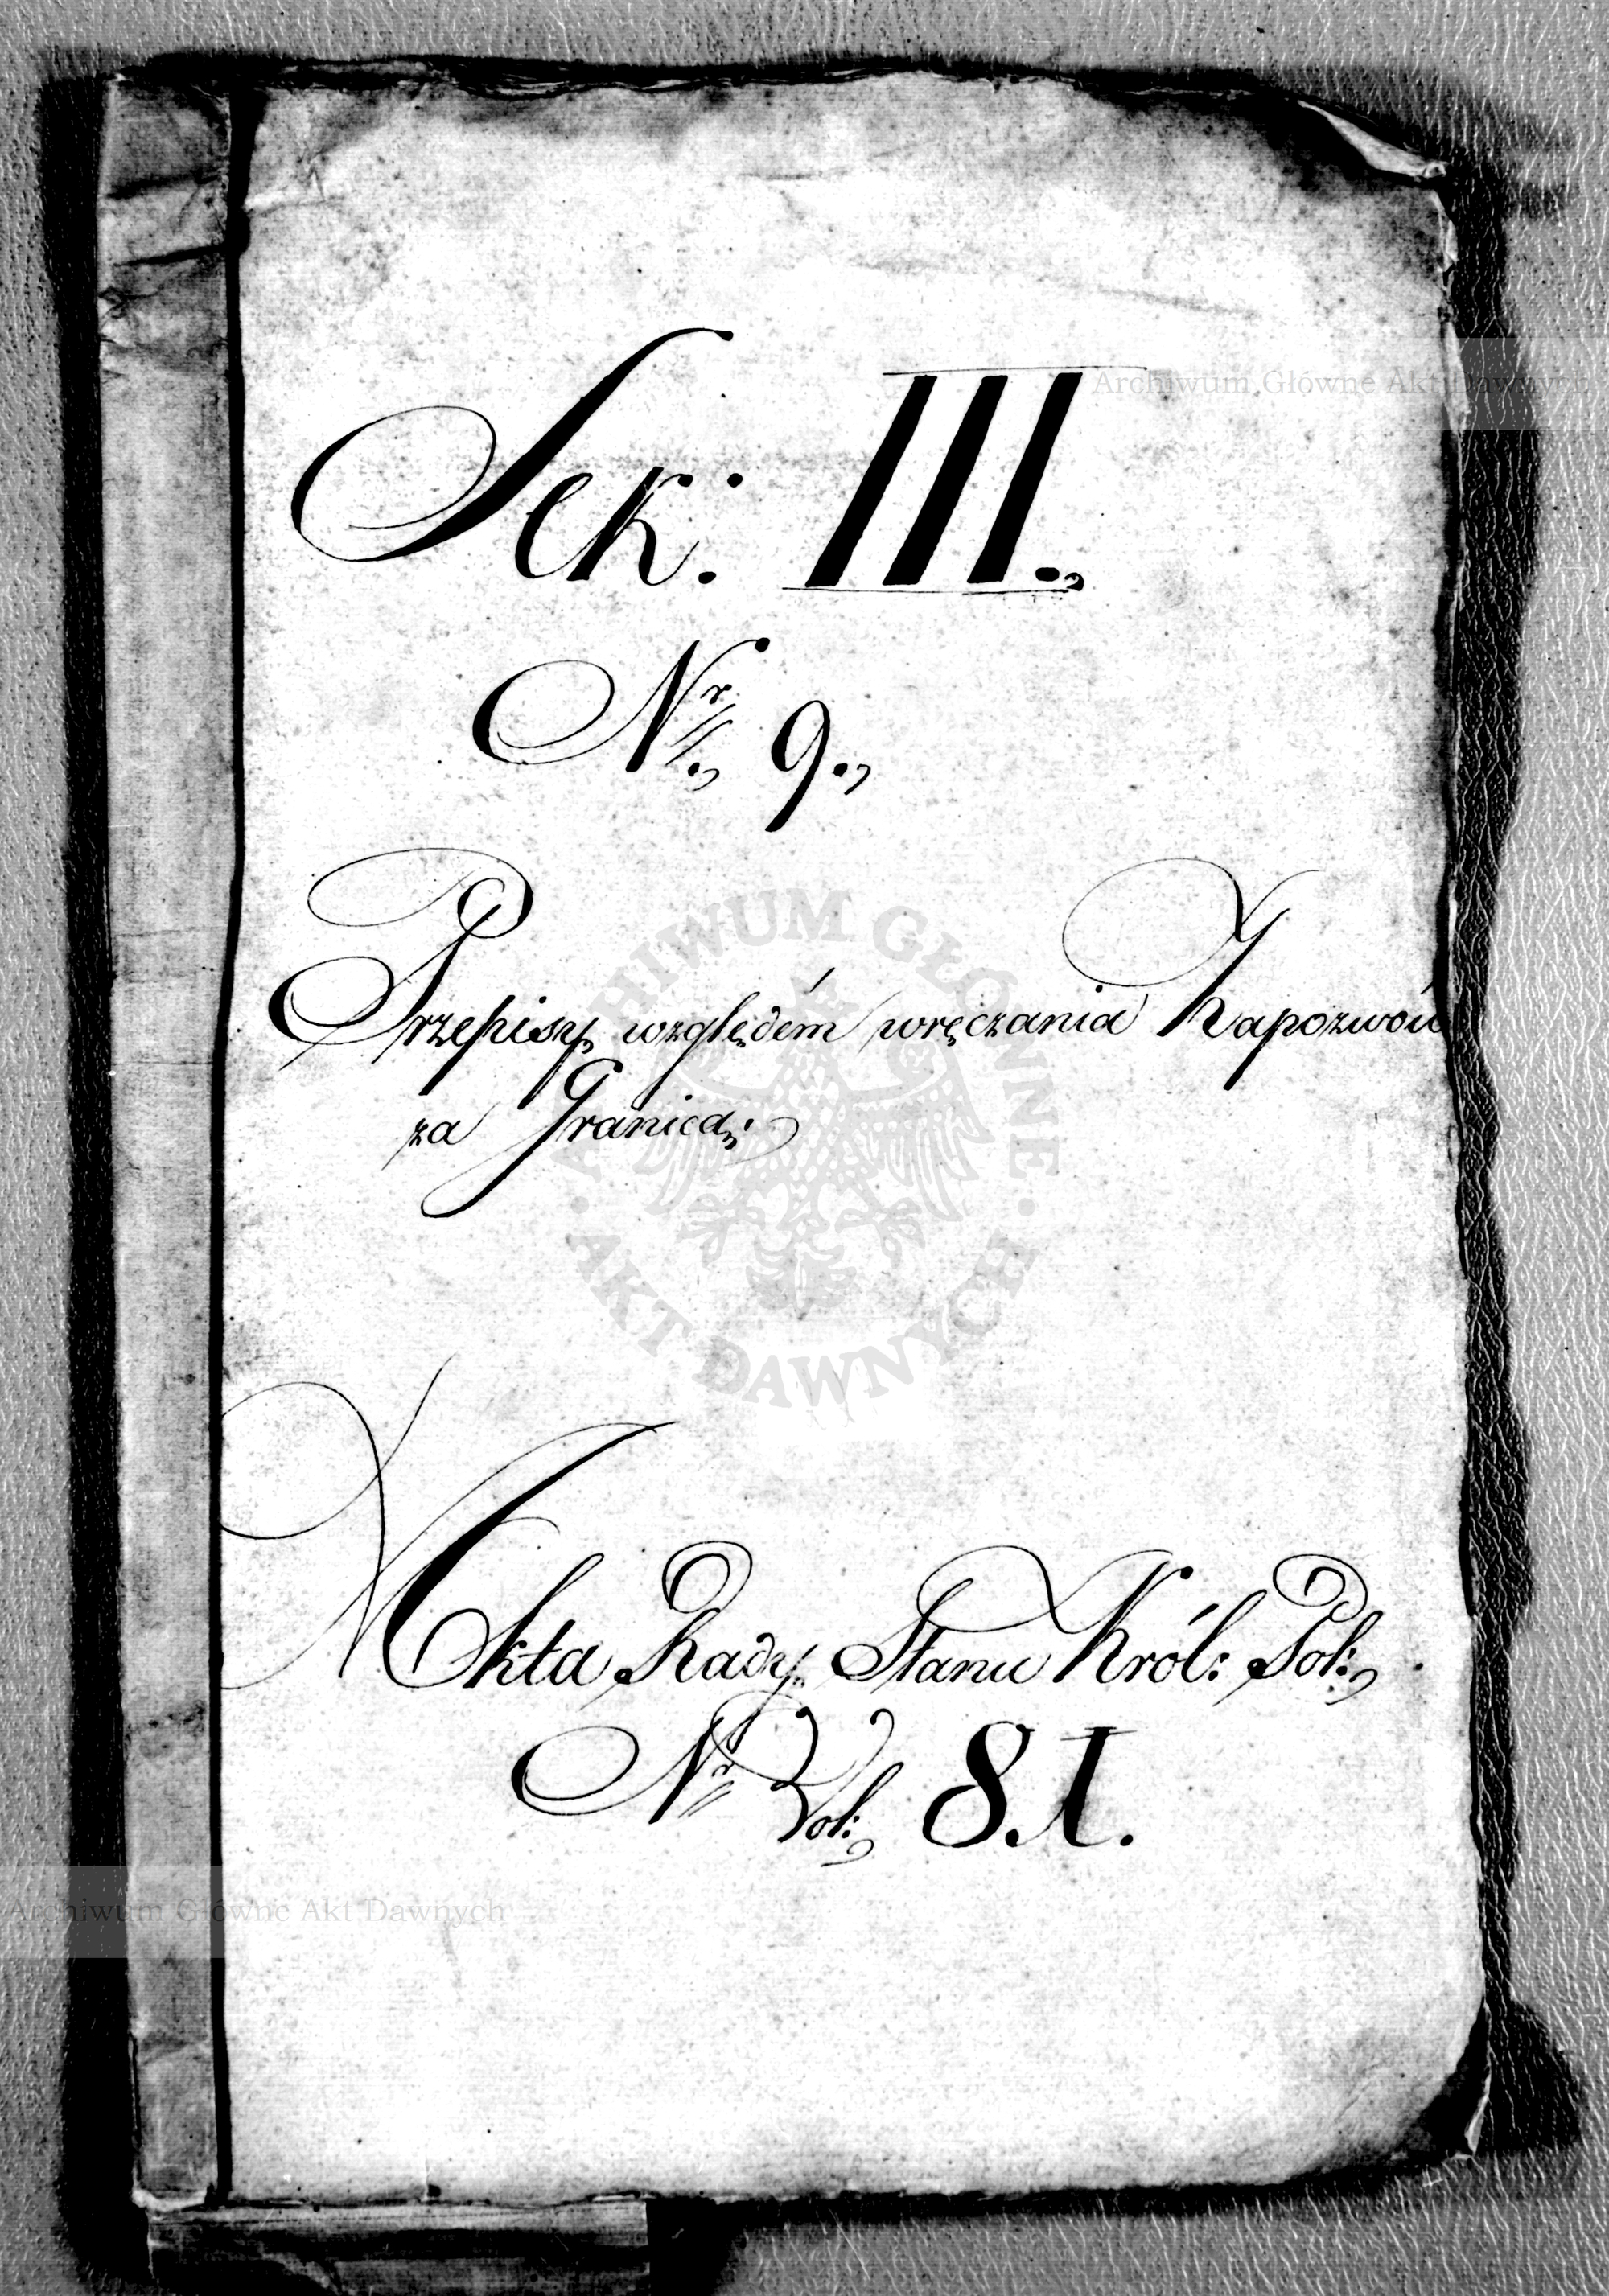 Sek: III.,
Nr., 9.,
Przepisy względém wręczania Zapozwów
za Granicą;
Akta Rady Stanu Król: Pol:,
Nr Vol:, 8.I.
Archiwum Główne Akt Dawnych
ARCHIWUM GŁÓWNE
AKT DAWNYCH
Archiwum Główne Akt Dawnych